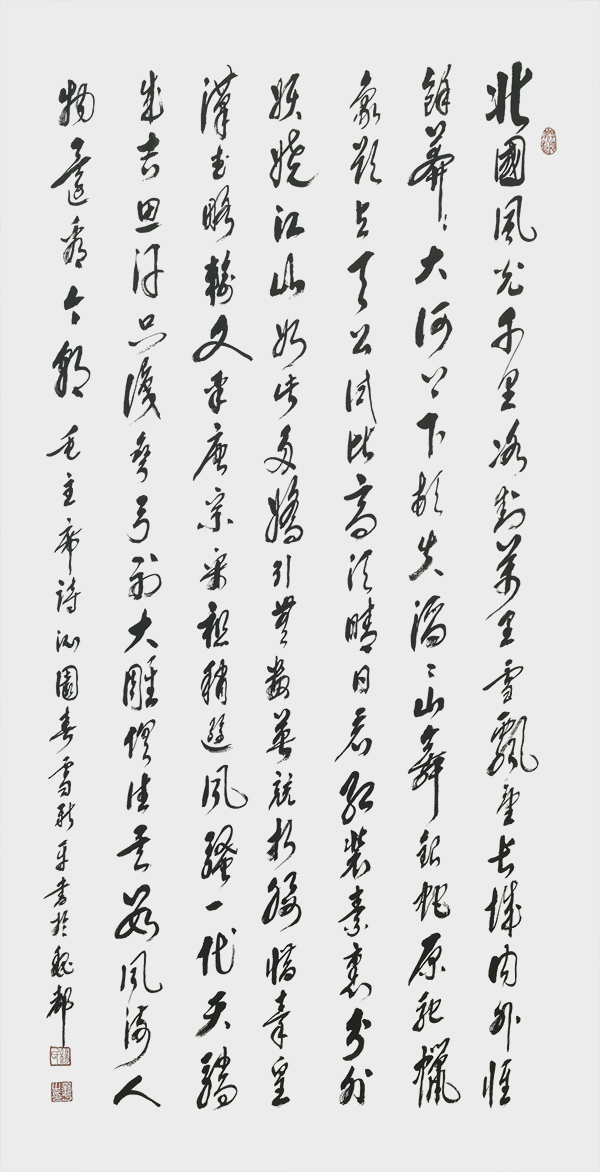 北國風光千里冰封萬里雪飄望長城內外惟
餘莽〻大河上下頓失滔〻山舞銀蛇原馳蠟
象欲與天公試比高須晴日看紅裝素裹分外
妖嬈江山如此多嬌引無數英競折腰惜秦皇
漢武略輸文采唐宗宋祖稍遜風騷一代天驕
成吉思汗只識彎弓射大雕俱往矣數風流人
物還看今朝 毛主席詩沁園春雪新平書於魏都